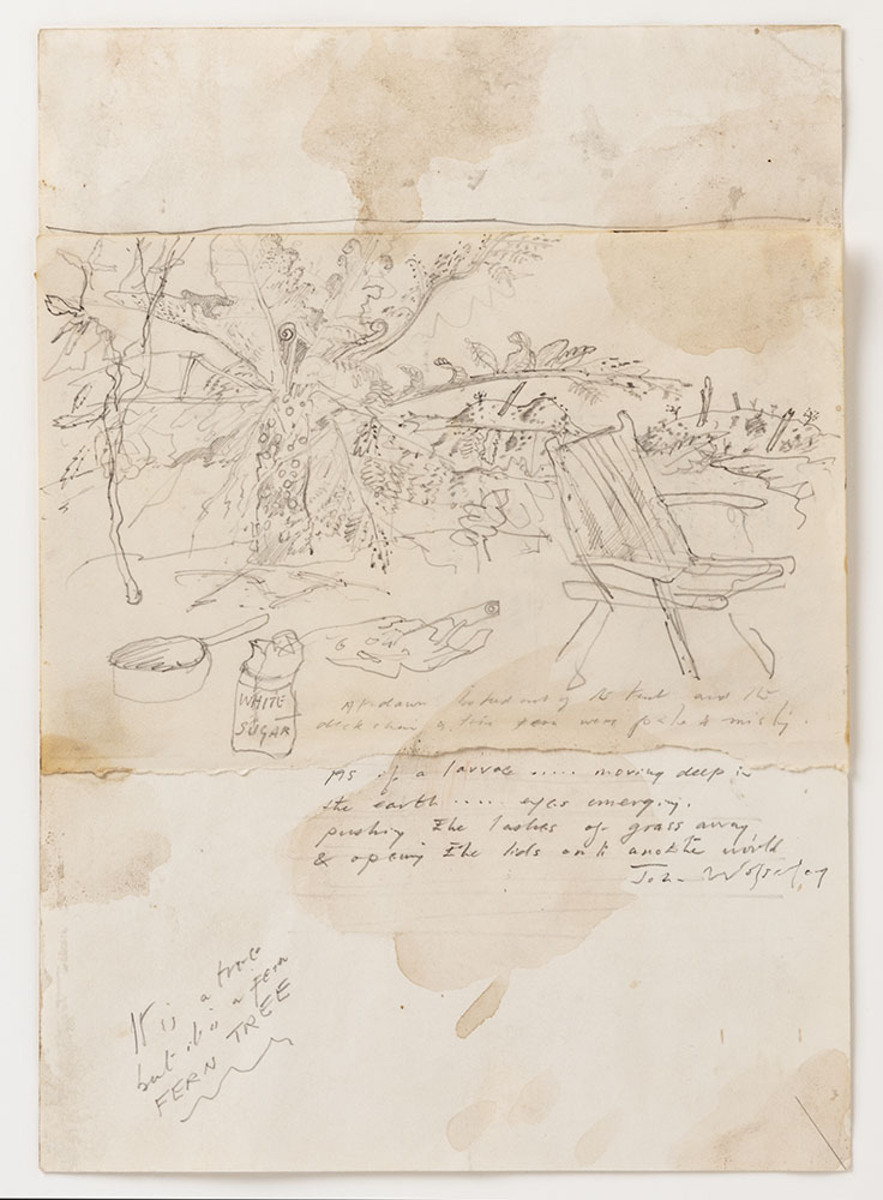 WHITE
SUGAR
At dawn looked out of the tent and the
deck chair & tree fern were pale & misty.
As if a larvae ..... moving deep in
the earth .... eyes emerging.
pushing the lashes of grass away
& opening the lids onto another world
John Wolseley
It is a tree
but it is a fern
FERN TREE